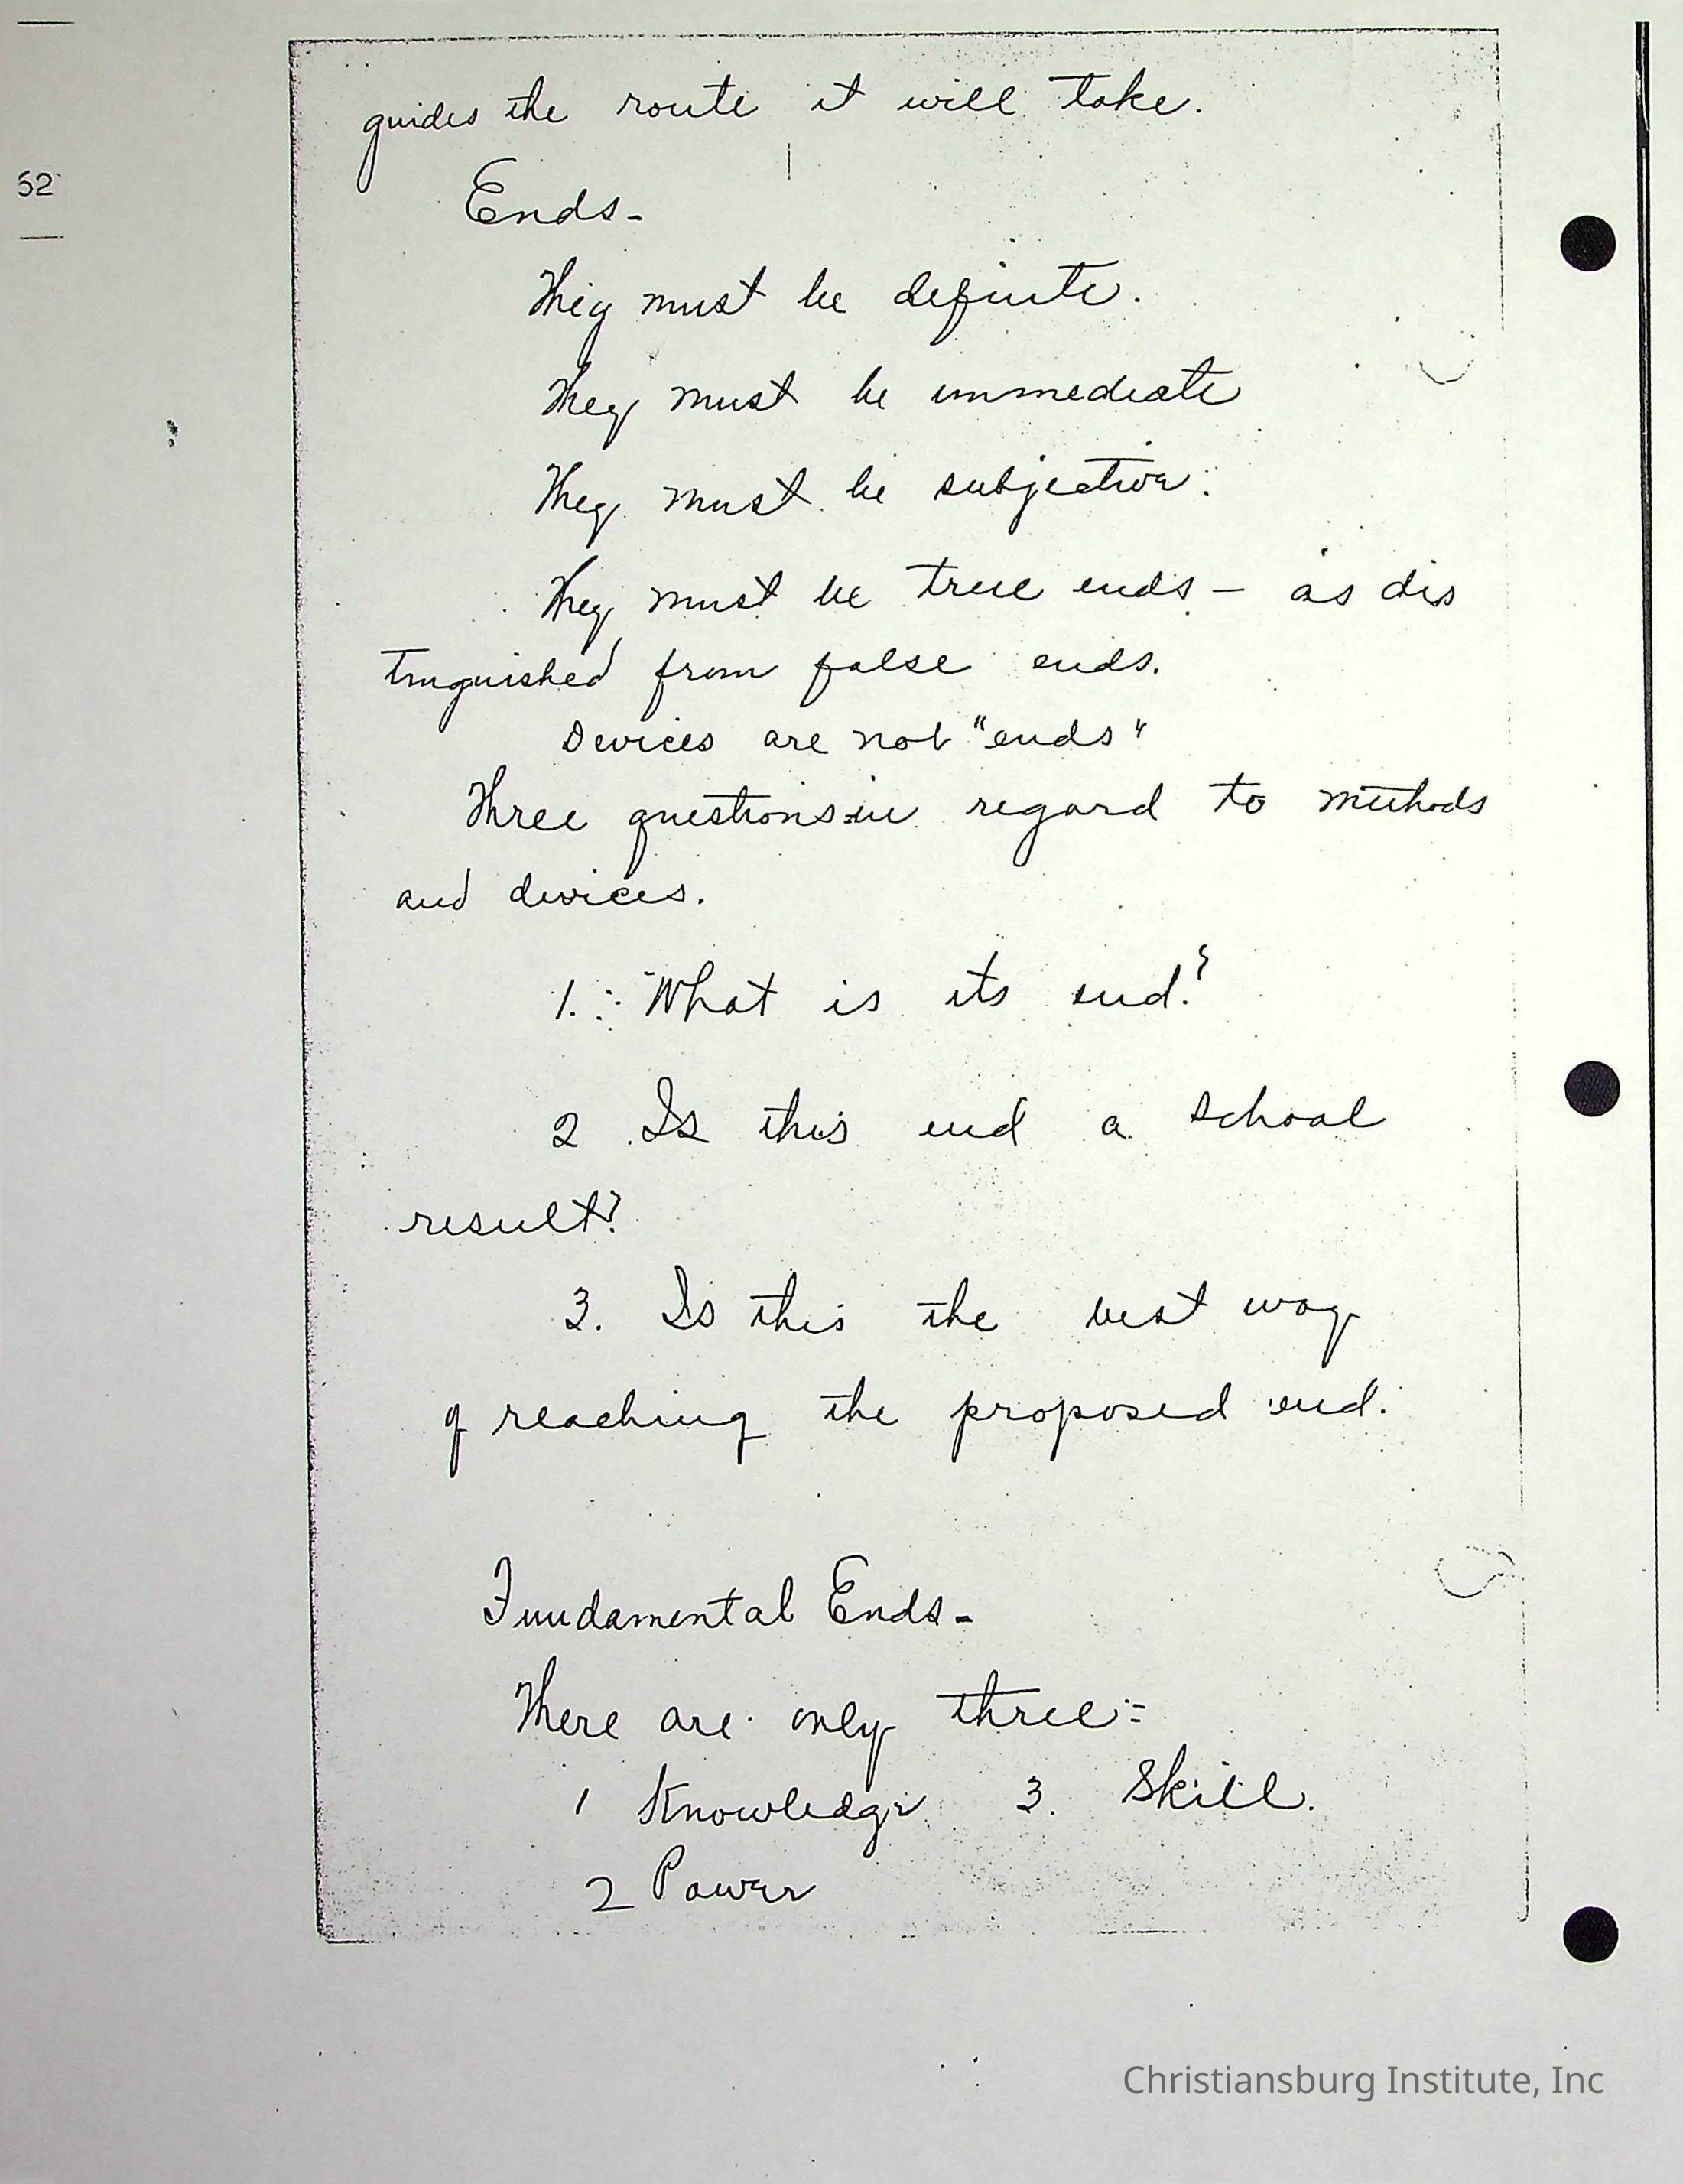 guides the route it will take.
52
Ends-
They must be definite.
They must be immediate
They must be subjective.
They must be true ends – as dis
tinguished from false ends.
Devices are not "ends"
Three questions in regard to methods
and devices.
1. What is its end?
2 Is this end a school
result?
3. Is this the best way
of reaching the proposed end.
Fundamental Ends-
There are only three:-
1 Knowledge 3. Skill.
2 Power
Christiansburg Institute, Inc